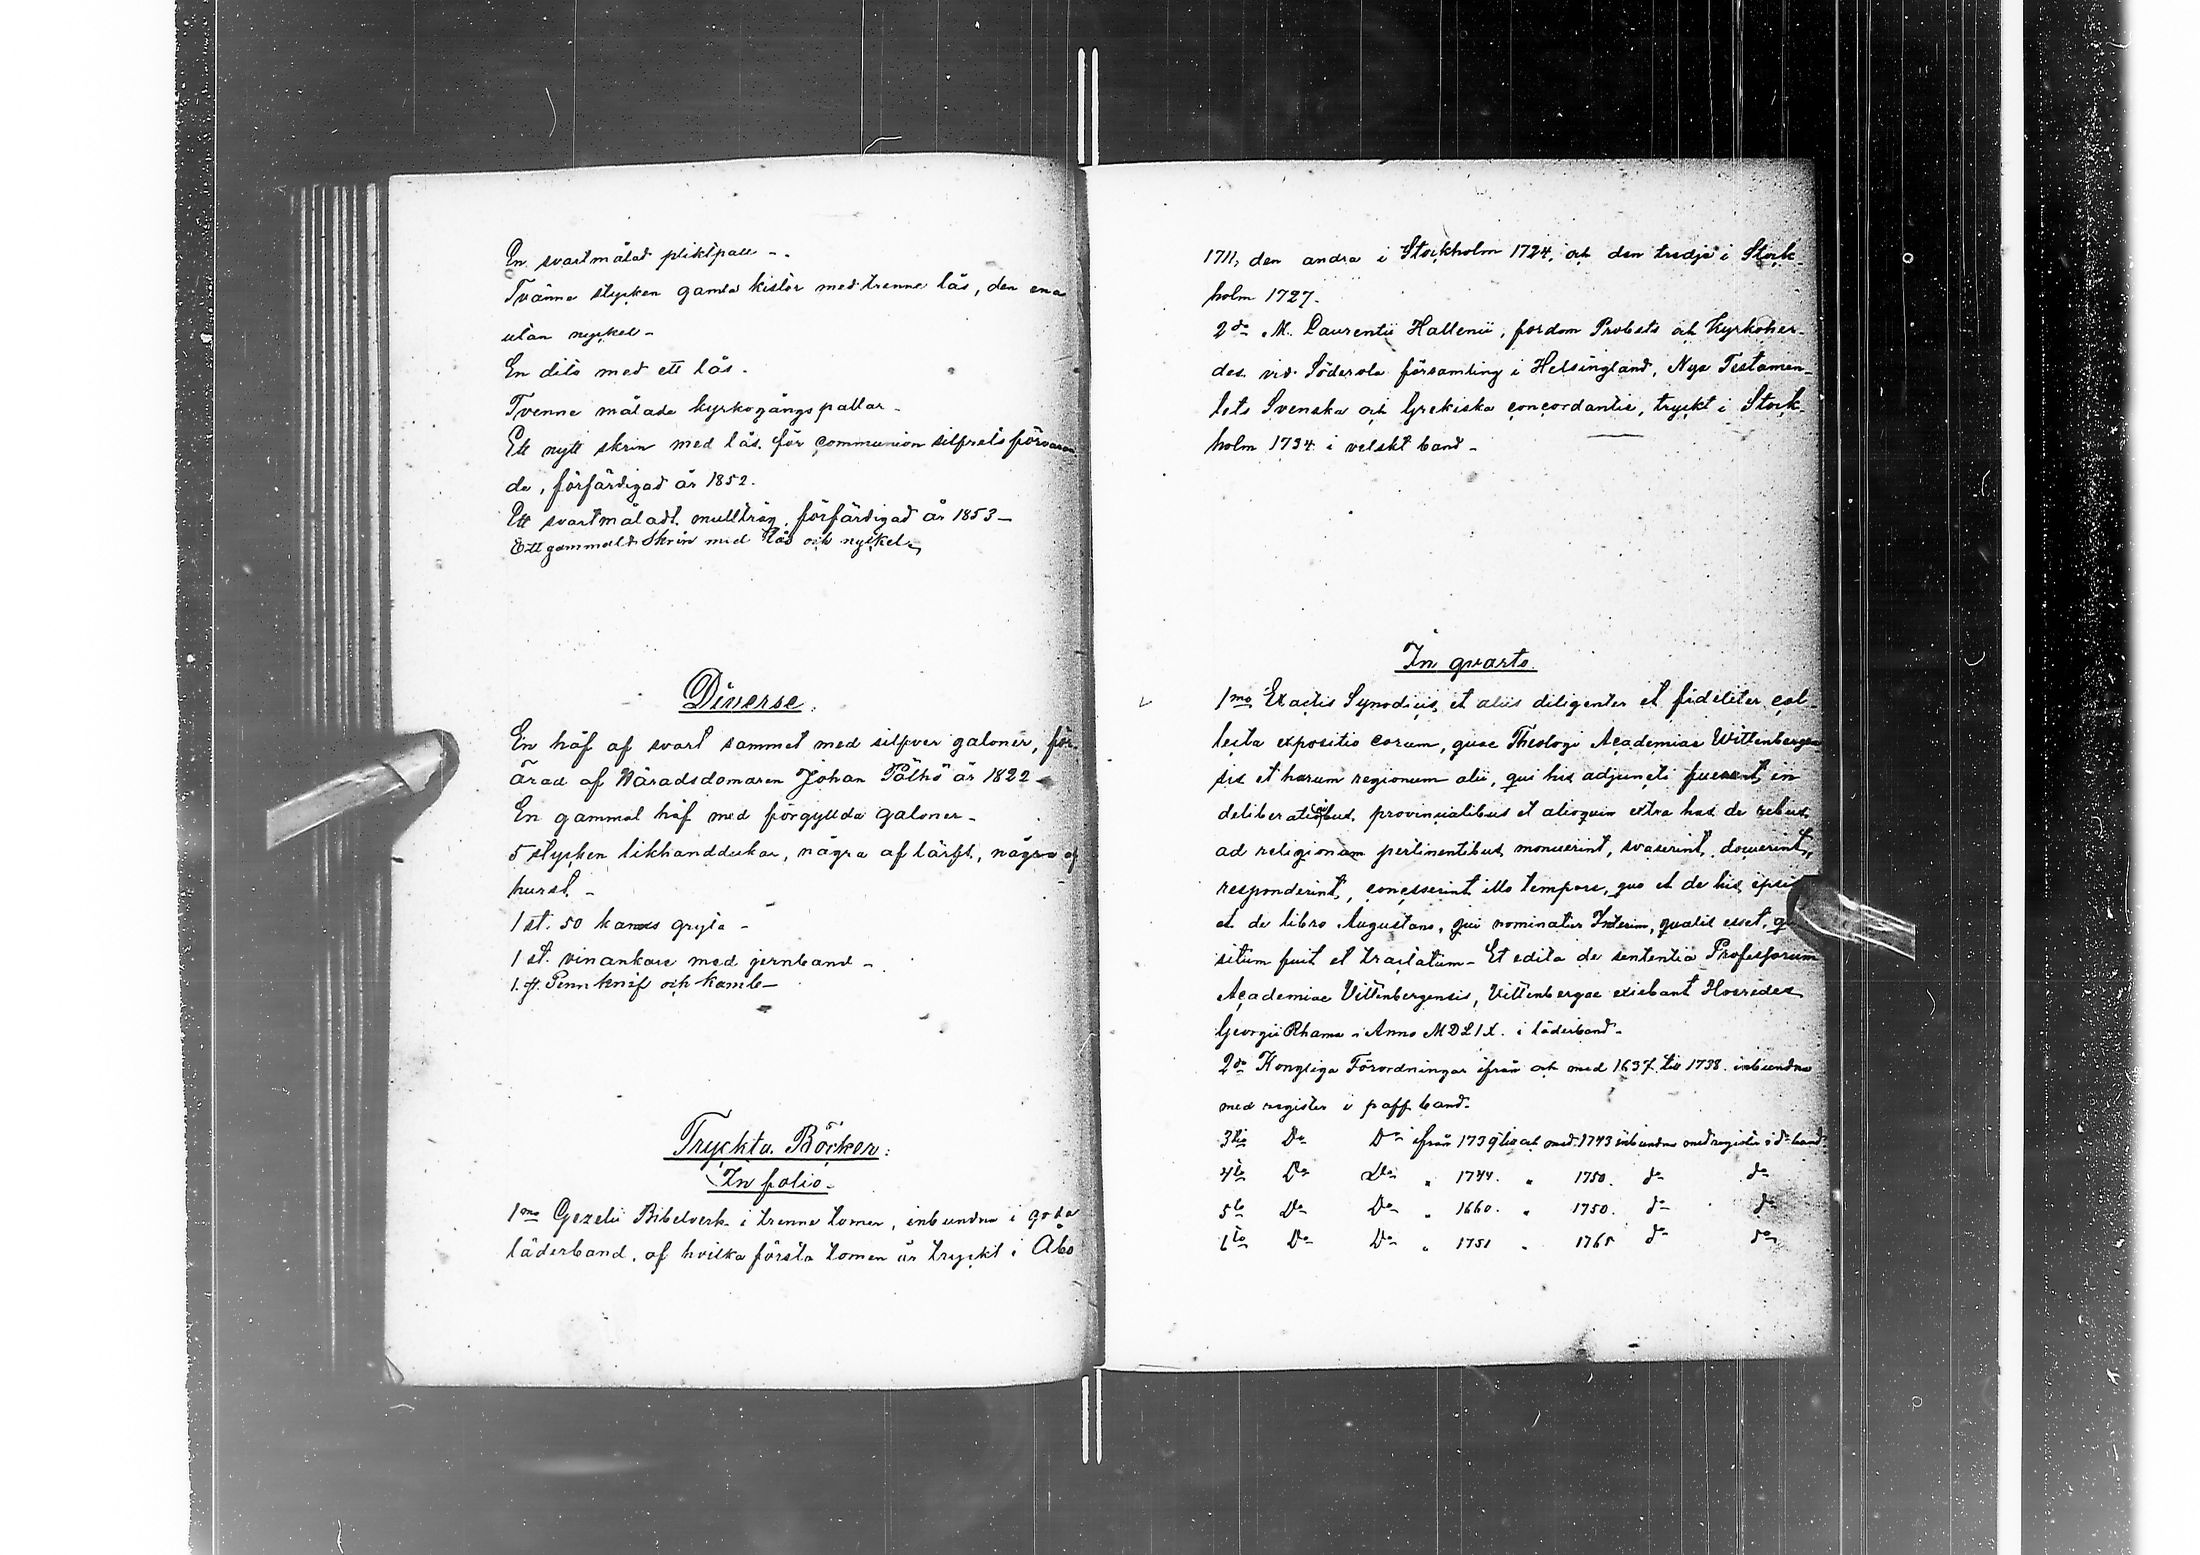 En svartmålad pliktpall -.
Tvänne stycken gamla kistor med trenne lås, den ena
utan nyckel -
En dito med ett lås.
Tvenne målade kyrkogångspallar -
Ett nytt skrin med lås för communion silfrets förvaran
de, förfärdigad år 1852.
Ett svartmåladt mulltråg, förfärdigad år 1853 -
Ett gammalt Skrin med lås och nyckel,
Diverse.
En håf af svart sammet med silfver galoner, för-
ärad af Häradsdomaren Johan Pålhö år 1822 -
En gammal håf med förgyllda galoner -
5 stycken likhanddukar, några af lärft, några af
hurst -
1 st. 50 kanns gryta -
1 st. vinankare med jernband -
1. st. Pennknif och kamb -
Tryckta Böcker:
In folio.
1mo Gezelii Bibelverk i trenne tomer, inbundna i goda
läderband, af hvilka första tomen är tryckt i Åbo
1711, den andra i Stockholm 1724, och den tredje i Stock-
holm 1727.
2do M. Laurentii Hallenii, fordom Probsts och Kyrkoher-
des vid Söderala församling i Helsingland, Nya Testamen-
tets Svenska och Grekiska concordantie, tryckt i Stock
holm 1734 i velskt band -
In qvarto.
1mo Ex actis Synodicis et aliis diligenter et fideliter col-
lecta expositio eorum, quae Theologi Academiae Wittenbergen
sis et harum regionum alii, qui his adjuncti fuerunt, in
deliberationibus provincialibus et alioquin extra has de rebus
ad religionem pertinentibus monuerint, svaserint, docuerint,
responderint, concesserint illo tempore, quo et de his ipsi
et de libro Augustano, qui nominatur Interim, qualis esset, qu
situm fuit et tractatum - Et edita de sententia Professorum
Academiae Vittenbergensis, Vittenbergae exiebant Hoeredes
Georgii Rhama i Anno MDLIX. i läderband -
2do Kongliga Förordningar ifrån och med 1637 till 1738. inbundna
med register i paff band.
3tio Do Do ifrån 1739 till och med 1743 inbundna med register i do band
4to Do Do " 1744. " 1750. do do
5to Do Do " 1660. " 1750. do do
6to Do Do " 1751 " 1765 do do